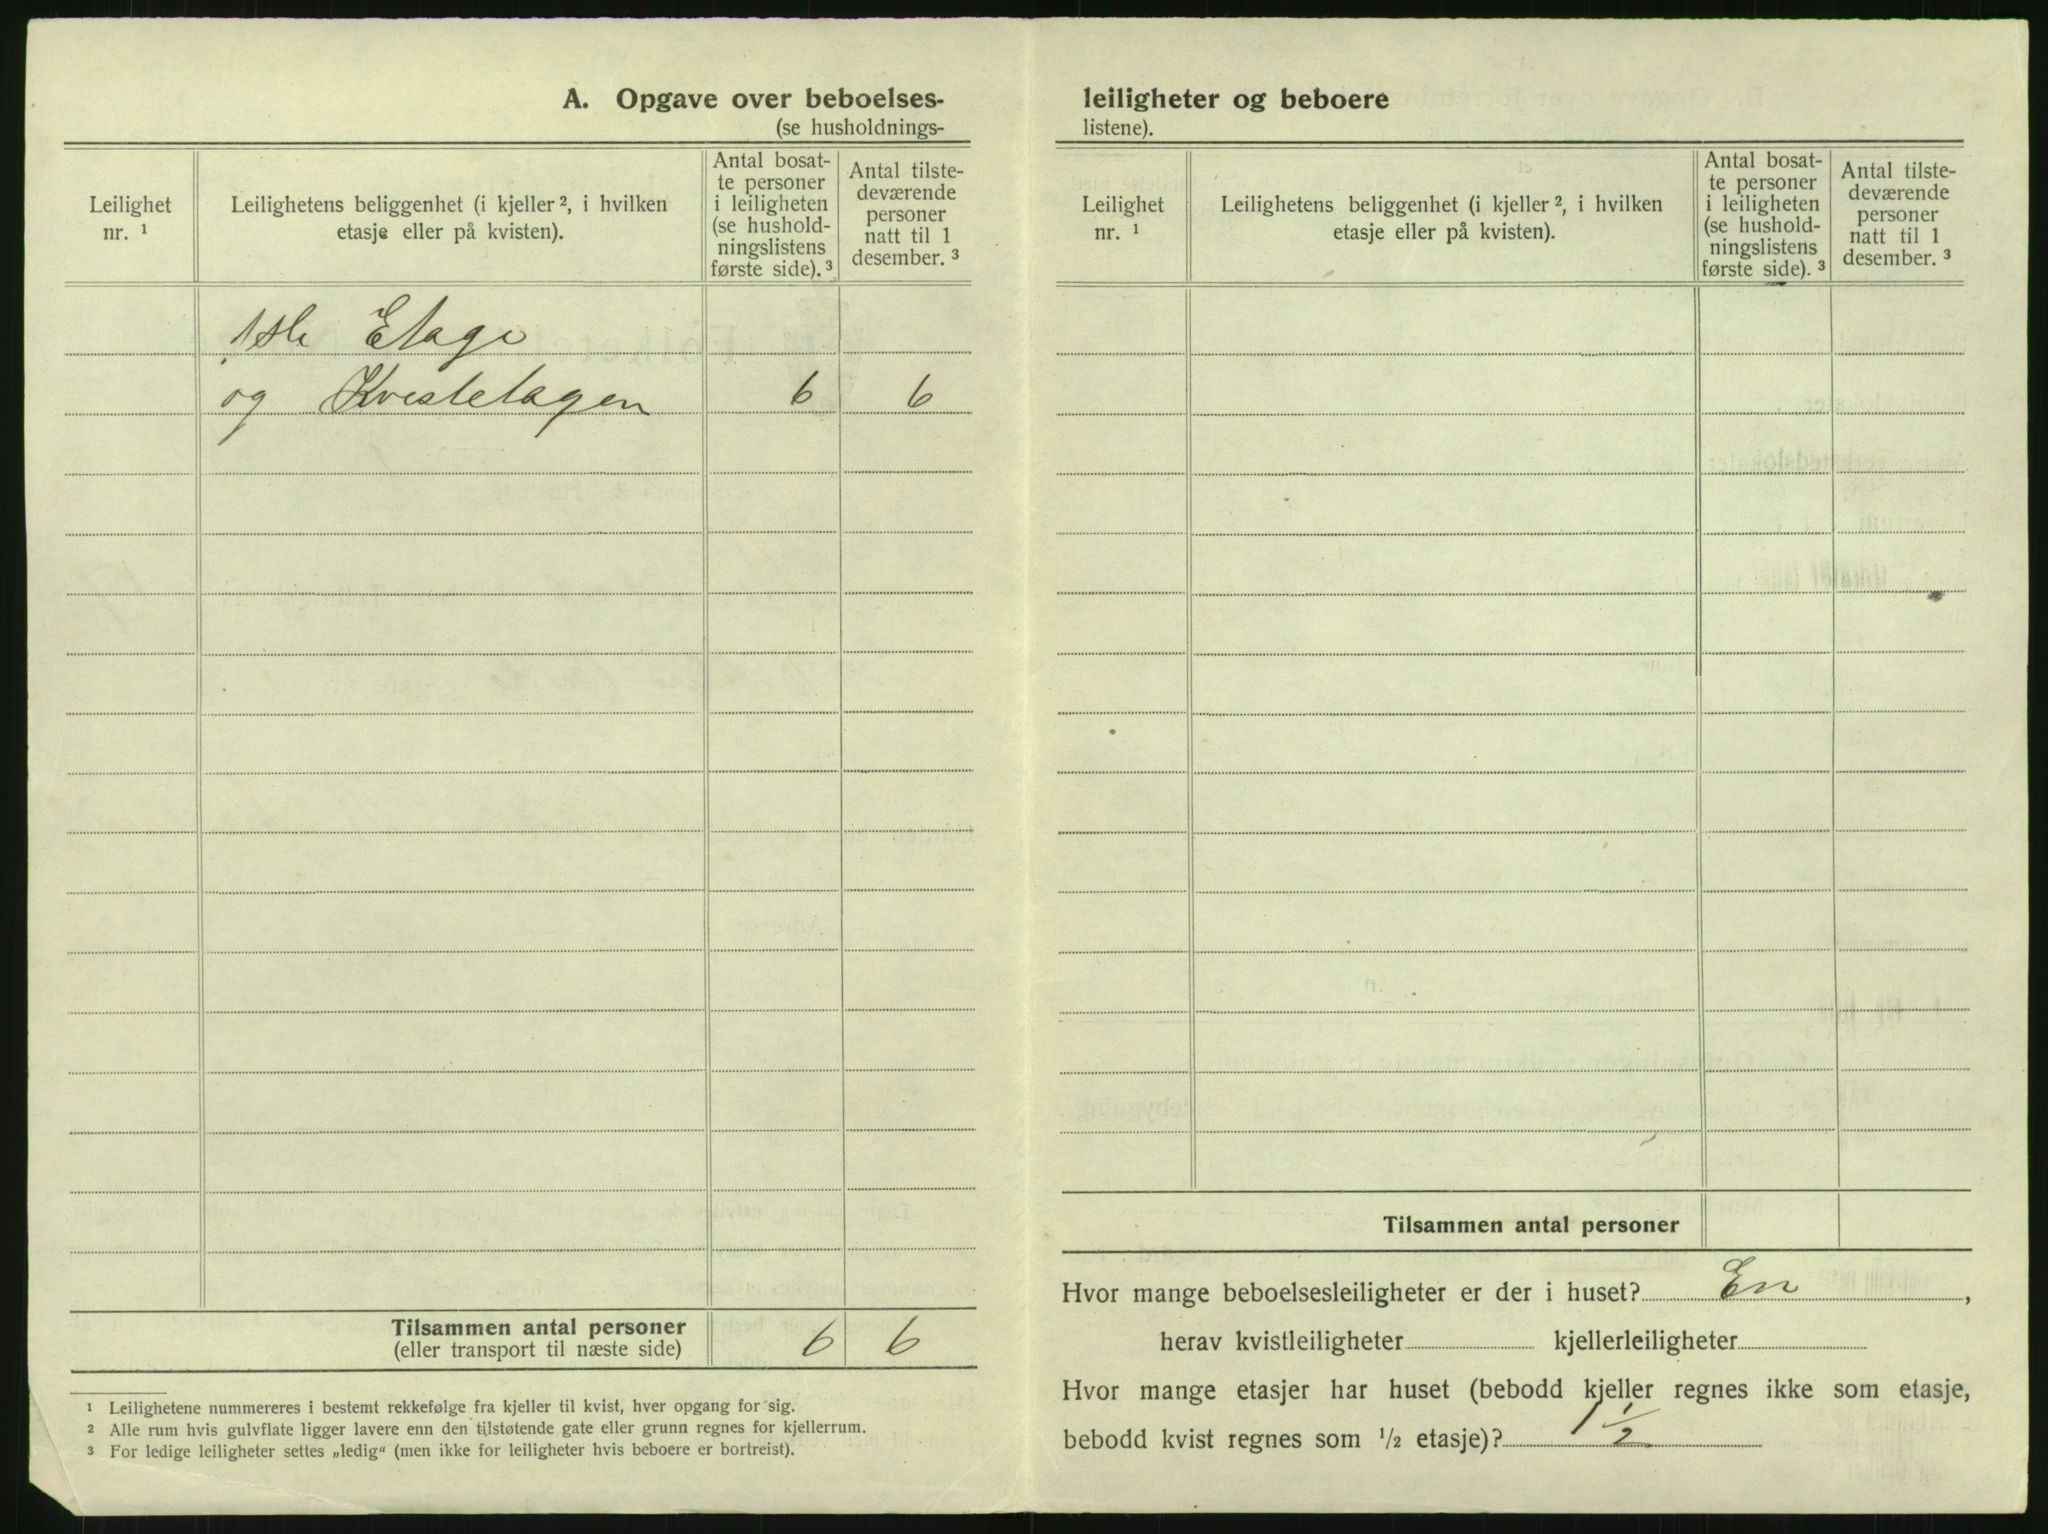 A. Opgave over beboelses-
(se husholdnings-
Leilighet
nr. ¹
Leilighetens beliggenhet (i kjeller ², i hvilken
etasje eller på kvisten).
Antal bosat-
te personer
i leiligheten
(se hushold-
ningslistens
første side). ³
Antal tilste-
deværende
personer
natt til 1
desember. ³
1ste Etage
og Kvistetagen 6 6
Tilsammen antal personer 6 6
(eller transport til næste side)
¹ Leilighetene nummereres i bestemt rekkefølge fra kjeller til kvist, hver opgang for sig.
² Alle rum hvis gulvflate ligger lavere enn den tilstøtende gate eller grunn regnes for kjellerrum.
³ For ledige leiligheter settes „ledig“ (men ikke for leiligheter hvis beboere er bortreist).
leiligheter og beboere
listene).
Leilighet
nr. ¹
Leilighetens beliggenhet (i kjeller ², i hvilken
etasje eller på kvisten).
Antal bosat-
te personer
i leiligheten
(se hushold-
ningslistens
første side). ³
Antal tilste-
deværende
personer
natt til 1
desember. ³
Tilsammen antal personer
Hvor mange beboelsesleiligheter er der i huset? En,
herav kvistleiligheter kjellerleiligheter
Hvor mange etasjer har huset (bebodd kjeller regnes ikke som etasje,
bebodd kvist regnes som ½ etasje)? 1 ½